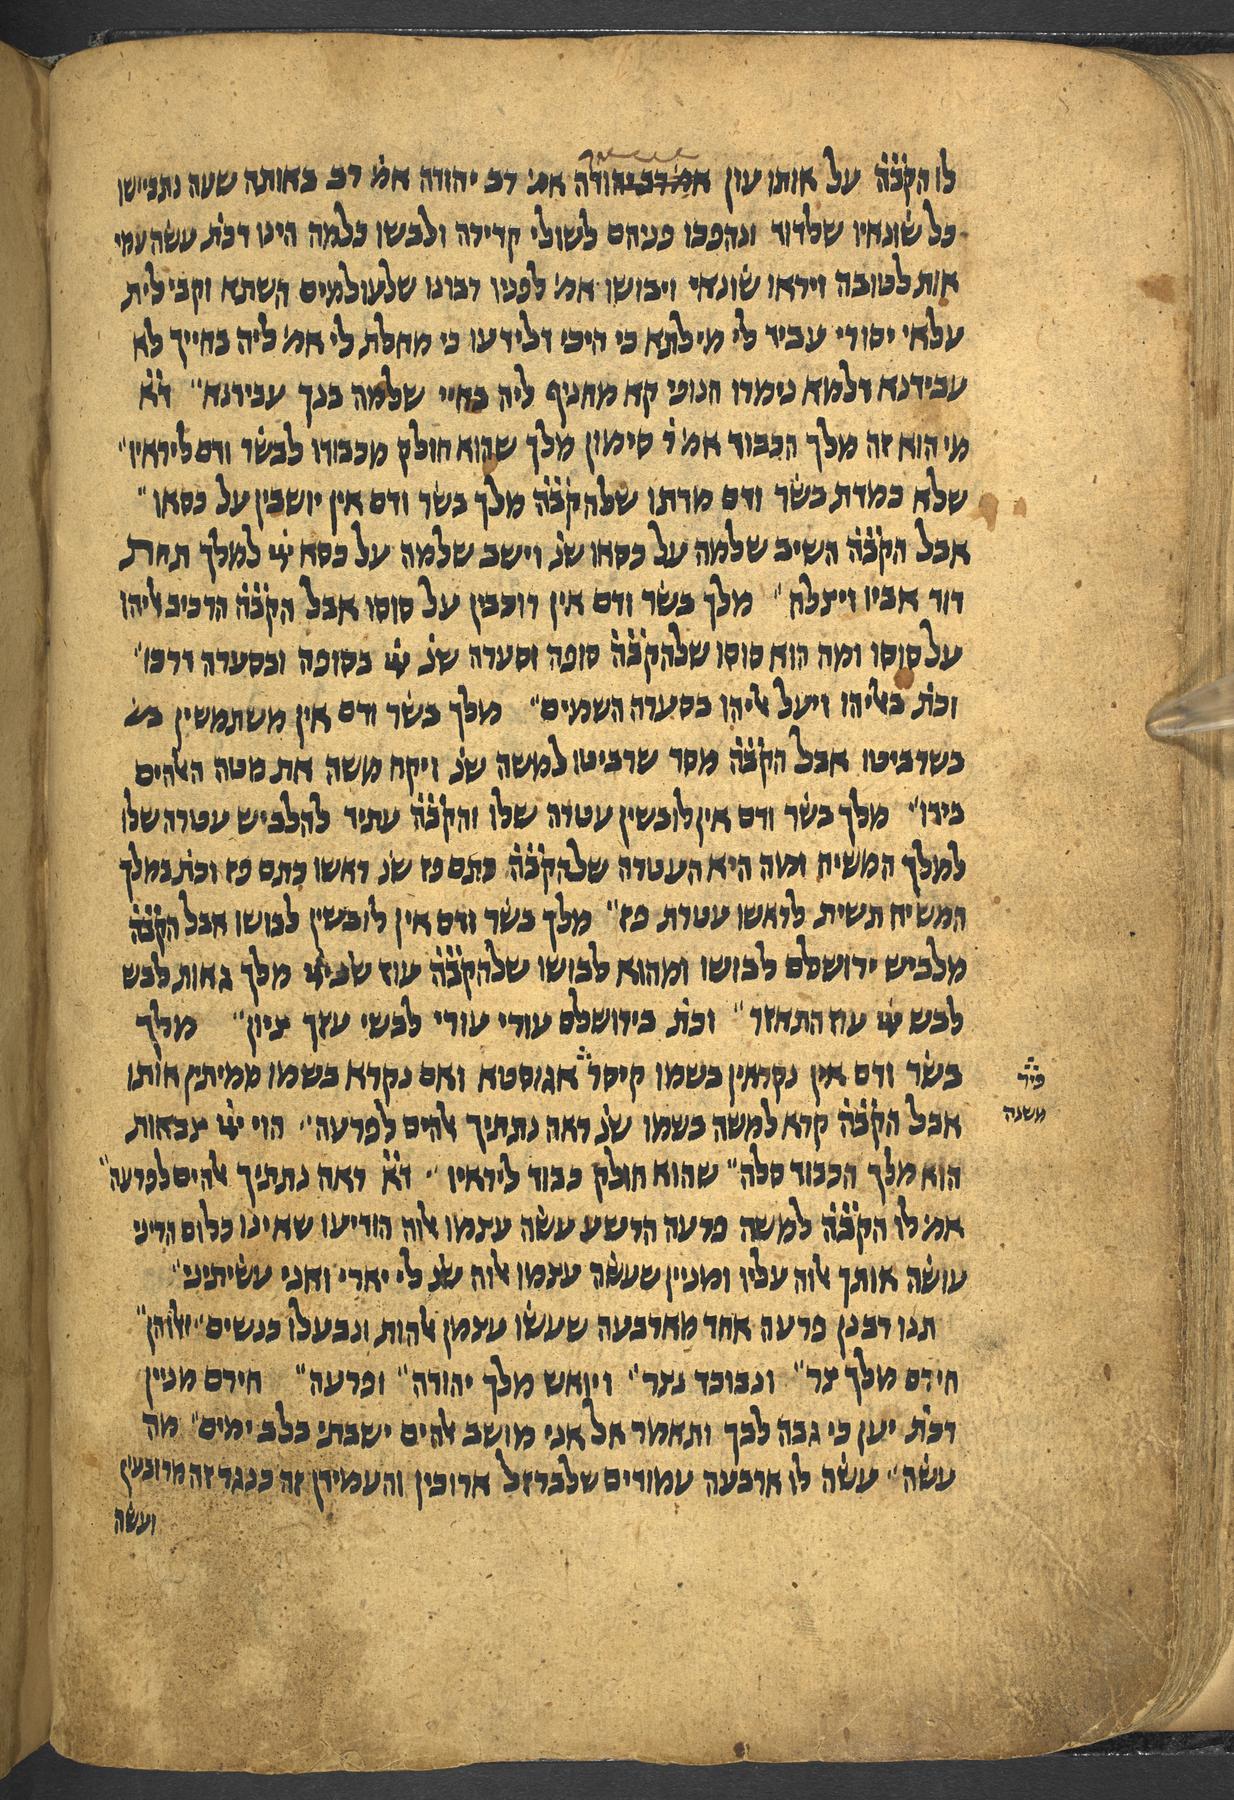 לו הקבּ̇ה̇ על אותו עון אמ׳ רב יהודה אמ׳ רב יהודה אמ׳ רב באותה שעה נתביישו
כל שונאיו שלדוד ונהפכו פניהם לשולי קדירה ולבשו כלמה הינו דכת׳ עשה עמי
אות לטובה ויראו שונאי ויבושו אמ׳ לפניו רבונו שלעולמים השתא וקבילית
עלאי יסורי עביד לי מילתא כי היכי דלידעו כי מחלת לי אמ׳ ליה בחייך לא
עבידנא דלמא נימרו חנופי קא מחניף ליה בחיי שלמה בנך עבידנא״ ד״א
מי הוא זה מלך הכבוד אמ׳ ר׳ סימון מלך שהוא חולק מכבודו לבשר ודם ליראיו״
שלא כמדת בשר ודם מדתו שלהקבּ״ה מלך בשר ודם אין יושבין על כסאו״
אבל הקב״ה השיב שלמה על כסאו שנ׳ וישב שלמה על כסא ייי למלך תחת
דוד אביו ויצלח״ מלך בשר ודם אין רוכבין על סוסו אבל הקב״ה הרכיב אליהו
על סוסו ומה הוא סוסו שלהקב״ה סופה וסערה שנ׳ ייי בסופה ובסערה דרכו״
וכת׳ באליהו ויעל אליהו בסערה השמים״ מלך בשר ודם אין משתמשין בש
בשרביטו אבל הקב״ה מסר שרביטו למשה שנ׳ ויקח משה את מטה האלהים
בידו״ מלך בשר ודם אין לובשין עטרה שלו והקב״ה עתיד להלביש עטרה שלו
למלך המשיח ומה היא העטרה שלהקב״ה כתם פז שנ׳ ראשו כתם פז וכת׳ במלך
המשיח תשית לראשו עטרת פז״ מלך בשר ודם אין לובשין לבושו אבל הקב״ה
מלביש ירושלם לבושו ומהוא לבושו שלהקב״ה עוז שנ׳ ייי מלך גאות לבש
לבש ייי עוז התאזר״ וכת׳ בירושלם עורי עורי לבשי עזך ציון״ מלך
בשר ודם אין נקראין בשמו קיסר אגוסטא ואם נקרא בשמו ממיתין אותו
פי׳ר
משנה
אבל הקב״ה קרא למשה בשמו שנ׳ ראה נתתיך אלהים לפרעה״ הוי ייי צבאות
הוא מלך הכבוד סלה״ שהוא חולק כבוד ליראיו״ ד״א ראה נתתיך אלהים לפרעה״
אמ׳ לו הקב״ה למשה פרעה הרשע עשה עצמו אלוה הודיעו שאינו כלום הריני
עושה אותך אלוה עליו ומניין שעשה עצמו אלוה שנ׳ לי יארי ואני עשיתיני״
תנו רבנן פרעה אחד מארבעה שעשו עצמן אלהות ונבעלו כנשים״ ואלו הן״
חירם מלך צר״ ונבוכד נצר״ ויואש מלך יהודה״ ופרעה״ חירם מניין
דכת׳ יען כי גבה לבך ותאמר אל אני מושב אלהים ישבתי בלב ימים״ מה
עשה״ עשה לו ארבעה עמודים שלברזל ארוכין והעמידן זה כנגד זה מרובעין
ועשה